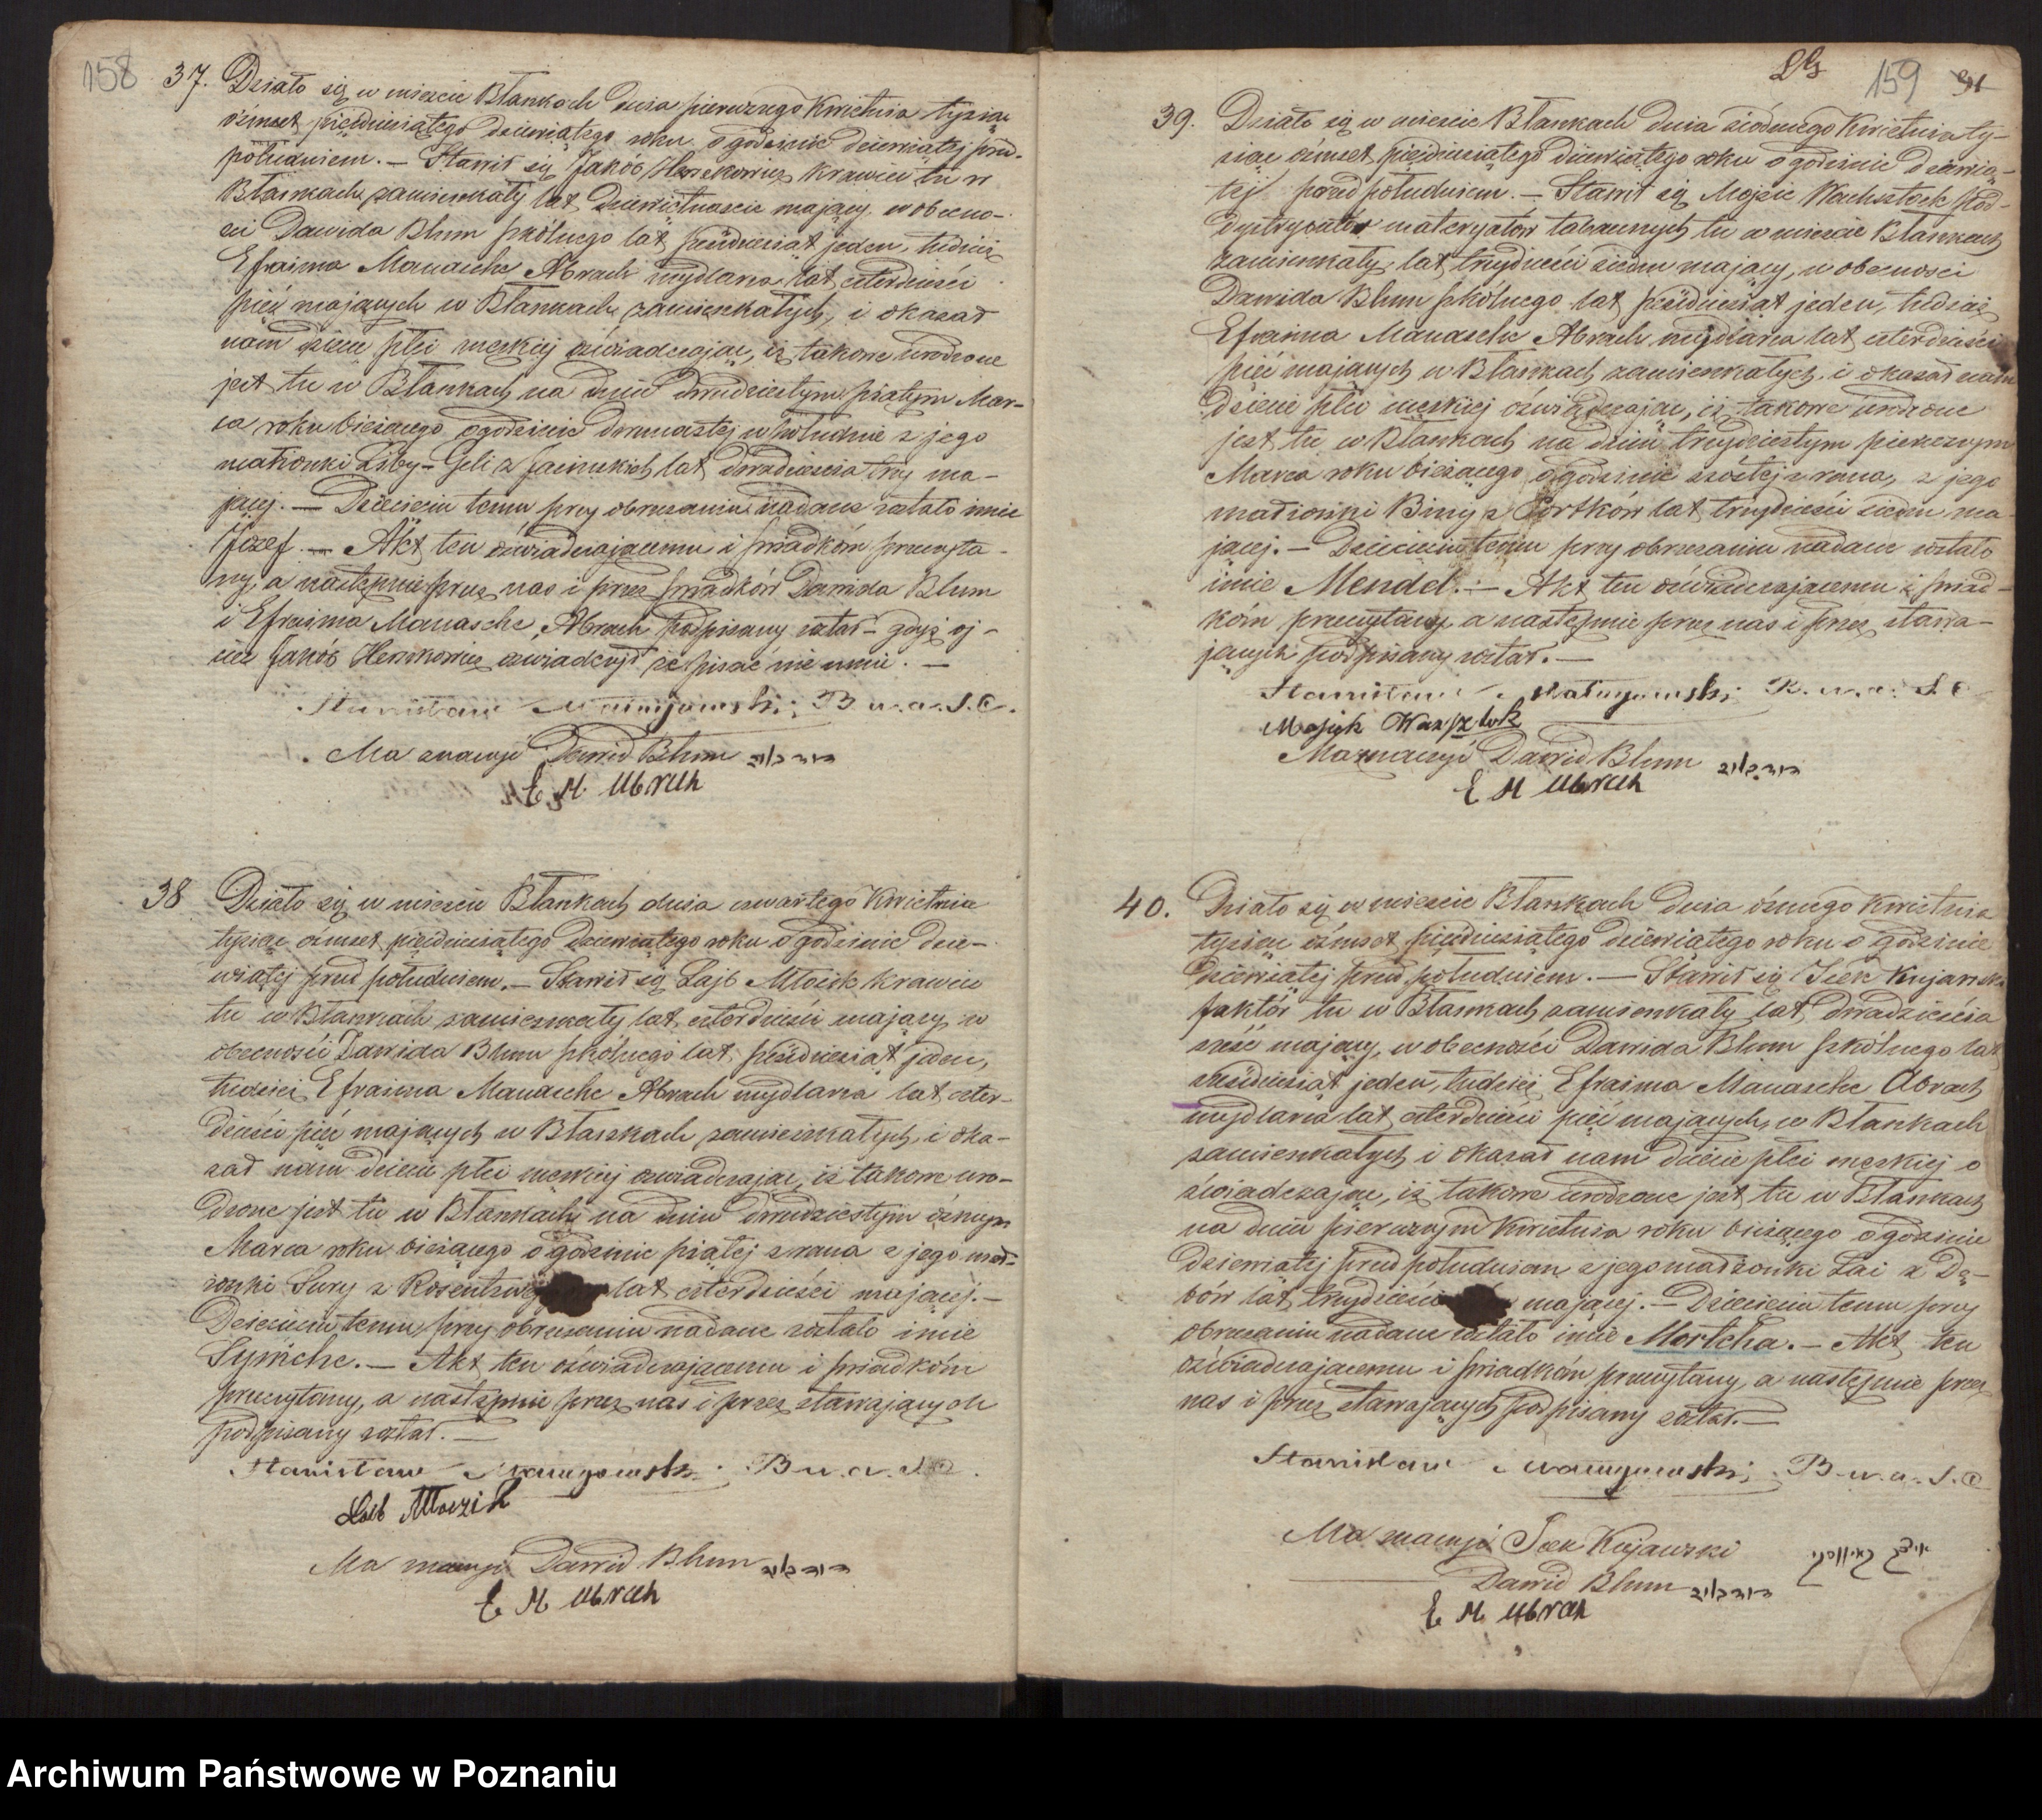 158
37. Działo się w mieście Błaszkach dnia pierwszego Kwietnia tysiąc
ośmset pięćdziesiątego dziewiątego roku o godzinie dziewiątej przed
południem. — Stawił się Jakób Herszkowicz krawiec tu w
Błaszkach zamieszkały lat dziewiętnaście mający, w obecno-
ści Dawida Blum szkólnego lat sześćdziesiąt jeden, tudzież
Efraima Manasche Abrach mydlarza lat czterdzieści
pięć mających w Błaszkach zamieszkałych, i okazał
nam dziecię płci męzkiej oświadczając, iż takowe urodzone
jest tu w Błaszkach na dniu dwudziestym piątym Mar-
ca roku bieżącego o godzinie dwunastej w południe z jego
małżonki Liby-Geli z lat dwadzieścia trzy ma-
jącej. — Dziecięciu temu przy obrzezaniu nadane zostało imie
Józef. — Akt ten oświadczającemu i świadkóm przeczyta-
ny, a następnie przez nas i przez świadków Dawida Blum
i Efraima Manasche Abrach podpisany został – gdyż oj-
ciec Jakób Herszkowicz oświadczył że pisać nie umie. —
Stanisław B. u. a. S. C.
Ma znaczyć Dawid Blum דוד בלום
E M Abrach
38 Działo się w mieście Błaszkach dnia czwartego Kwietnia
tysiąc ośmset pięćdziesiątego dziewiątego roku o godzinie dzie-
wiątej przed południem. — Stawił się Lajb Młocik krawiec
tu w Błaszkach zamieszkały lat czterdzieści mający, w
obecności Dawida Blum szkólnego lat sześćdziesiąt jeden,
tudzież Efraima Manasche Abrach mydlarza lat czter-
dzieści pięć mających w Błaszkach zamieszkałych, i oka-
zał nam dziecię płci męzkiej oświadczając, iż takowe uro-
dzone jest tu w Błaszkach na dniu dwudziestym ósmym
Marca roku bieżącego o godzinie piątej z rana z jego mał-
żonki Sury z lat czterdzieści mającej. —
Dziecięciu temu, przy obrzezaniu nadane zostało imie
Symche. — Akt ten oświadczającemu i świadkóm
przeczytany, a następnie przez nas i przez stawających
podpisany został. —
Stanisław B. u. a. S. C.
Leib Młoczik
Ma znaczyć Dawid Blum דוד בלום
E M Abrach
159
39. Działo się w mieście Błaszkach dnia siódmego Kwietnia ty-
siąc ośmset pięćdziesiątego dziewiątego roku o godzinie dziewią-
tej przed południem. — Stawił się Mojsie Wachsztock pod-
dystrybutor materyałów tabacznych tu w mieście Błaszkach
zamieszkały, lat trzydzieści siedm mający, w obecności
Dawida Blum szkólnego lat sześćdziesiąt jeden, tudzież
Efraima Manasche Abrach mydlarza lat czterdzieści
pięć mających w Błaszkach zamieszkałych i okazał nam
dziecię płci męzkiej oświadczając, iż takowe urodzone
jest tu w Błaszkach na dniu trzydziestym pierwszym
Marca roku bieżącego o godzinie szóstej z rana, z jego
małżonki Biny z lat trzydzieści siedm ma-
jącej. — Dziecięciu temu przy obrzezaniu nadane zostało
imie Mendel. — Akt ten oświadczającemu i świad-
kóm przeczytany a następnie przez nas i przez stawa-
jących podpisany został. —
Stanisław B. u. a. S. C.
Ma znaczyć Dawid Blum דוד בלום
E M Abrach
40. Działo się w mieście Błaszkach dnia ósmego Kwietnia
tysiąc ośmset pięćdziesiątego dziewiątego roku o godzinie
dziewiątej przed południem. — Stawił się Icek Kujawski
faktór tu w Błaszkach zamieszkały lat dwadzieścia
sześć mający, w obecności Dawida Blum szkólnego lat
sześćdziesiąt jeden, tudzież Efraima Manasche Abrach
mydlarza lat czterdzieści pięć mających, w Błaszkach
zamieszkałych i okazał nam dziecię płci męzkiej o
świadczając, iż takowe urodzone jest tu w Błaszkach
na dniu pierwszym Kwietnia roku bieżącego o godzinie
dziewiątej przed południem z jego małżonki Łai z Dę-
bów lat trzydzieści mającej. — Dziecięciu temu przy
obrzezaniu nadane zostało imie Mortcha. — Akt ten
oświadczającemu i świadkóm przeczytany, a następnie przez
nas i przez stawających podpisany został. —
Stanisław B. u. a. S. C.
Ma znaczyć Icek Kujawski
Dawid Blum דוד בלום
E M Abrach
Archiwum Państwowe w Poznaniu